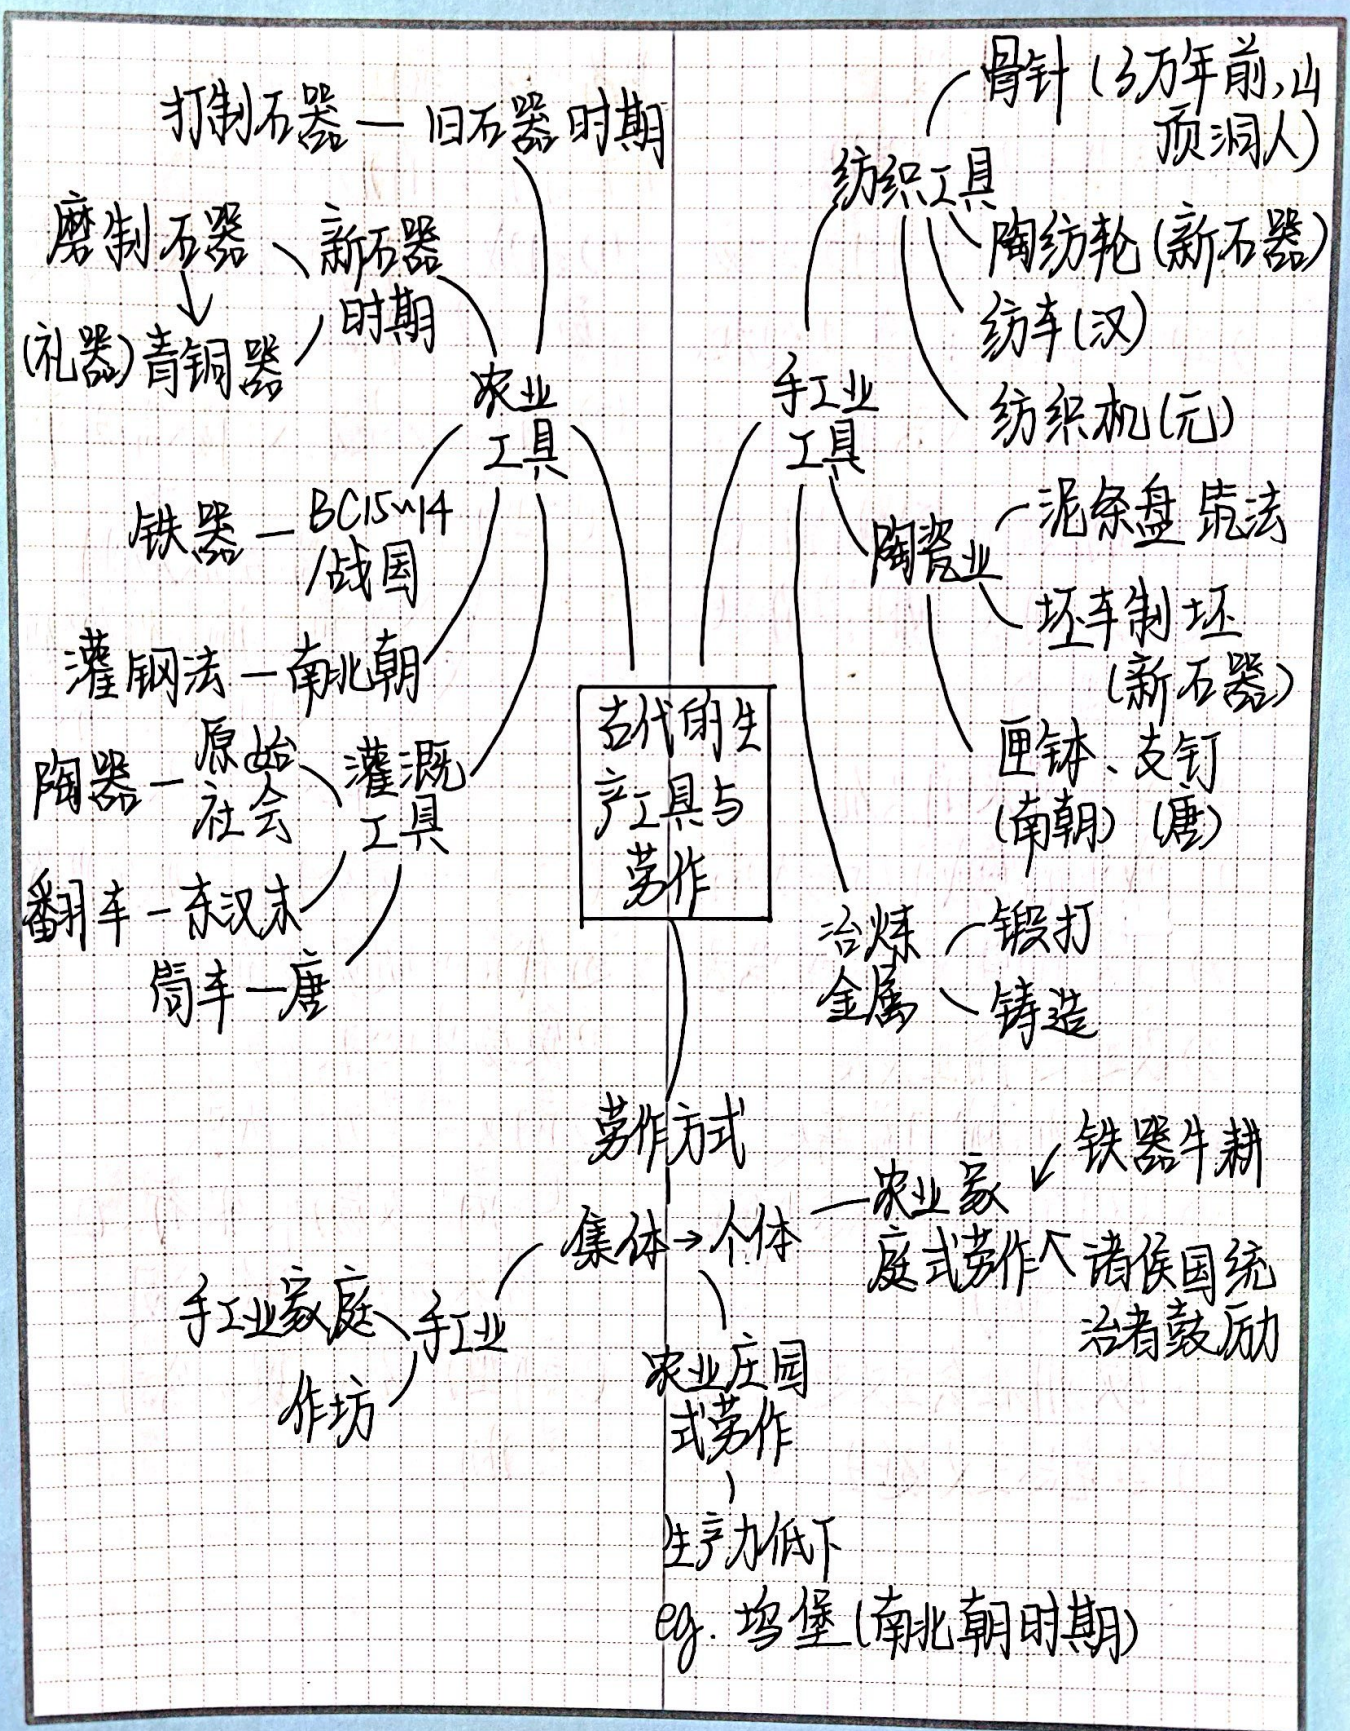 打制石器 — 旧石器时期
磨制石器
新石器
时期
↓
(礼器)青铜器
农业
工具
铁器 — BC15~14
/战国
灌钢法 — 南北朝
灌溉
工具
陶器 — 原始
社会
翻车 — 东汉末
筒车 — 唐
骨针(3万年前,山
顶洞人)
纺织工具
陶纺轮(新石器)
纺车(汉)
纺织机(元)
手工业
工具
陶瓷业
泥条盘筑法
坯车制坯
(新石器)
匣钵、支钉
(南朝)(唐)
冶炼
金属
锻打
铸造
古代的生
产工具与
劳作
劳作方式
集体→个体
农业家
庭式劳作
铁器牛耕
诸侯国统
治者鼓励
手工业
手工业家庭
作坊
农业庄园
式劳作
生产力低下
eg. 坞堡(南北朝时期)